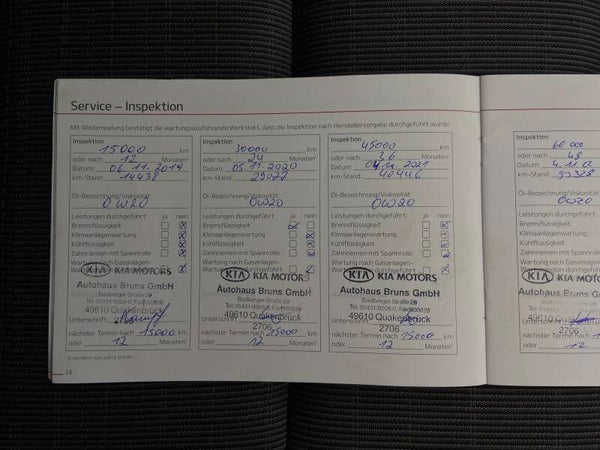 Service – Inspektion
Mit Abstempelung bestätigt die wartungsausführende Werkstatt, dass die Inspektion nach Herstellervorgabe durchgeführt wurde.
Inspektion
15000 km
oder nach 12 Monaten!
Datum 06.11.2019
km-Stand 14438
Öl-Bezeichnung/Viskosität
0W20
Leistungen durchgeführt: ja nein
Bremsflüssigkeit
Klimaanlagenwartung
Kühlflüssigkeit
Zahnriemen mit Spannrolle
Wartung nach Gasanlagen-
KIA KIA MOTORS
Autohaus Bruns GmbH
Badberger Straße 29
49610 Quakenbrück
Unterschrift 2706
nächster Termin nach 15000 km
oder 12 Monaten!
Inspektion
30000 km
oder nach 24 Monaten!
Datum 05.11.2020
km-Stand 29022
Öl-Bezeichnung/Viskosität
0W20
Leistungen durchgeführt: ja nein
Bremsflüssigkeit
Klimaanlagenwartung
Kühlflüssigkeit
Zahnriemen mit Spannrolle
Wartung nach Gasanlagen-
KIA KIA MOTORS
Autohaus Bruns GmbH
Badberger Straße 29
49610 Quakenbrück
Unterschrift 2706
nächster Termin nach 15000 km
oder 12 Monaten!
Inspektion
45000 km
oder nach 36 Monaten!
Datum 04.11.2021
km-Stand 40446
Öl-Bezeichnung/Viskosität
0W20
Leistungen durchgeführt: ja nein
Bremsflüssigkeit
Klimaanlagenwartung
Kühlflüssigkeit
Zahnriemen mit Spannrolle
Wartung nach Gasanlagen-
KIA KIA MOTORS
Autohaus Bruns GmbH
Badberger Straße 29
49610 Quakenbrück
Unterschrift 2706
nächster Termin nach 15000 km
oder 12 Monaten!
Inspektion
60 000
oder nach 48
Datum 4.11.22
km-Stand 53328
Öl-Bezeichnung/Visko
0W20
Leistungen durchgeführt
Bremsflüssigkeit
Klimaanlagenwartung
Kühlflüssigkeit
Zahnriemen mit Spannrolle
KIA
Autohaus Bruns
49610 Quaken
nächster Termin nach
oder 12
14